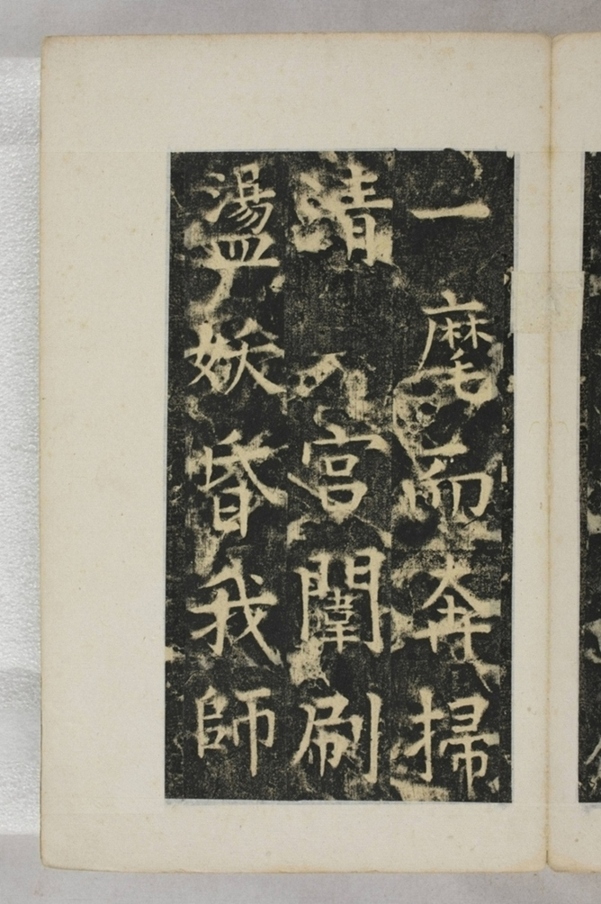 一麾而奔掃
清宮闈刷
盪妖昏我師